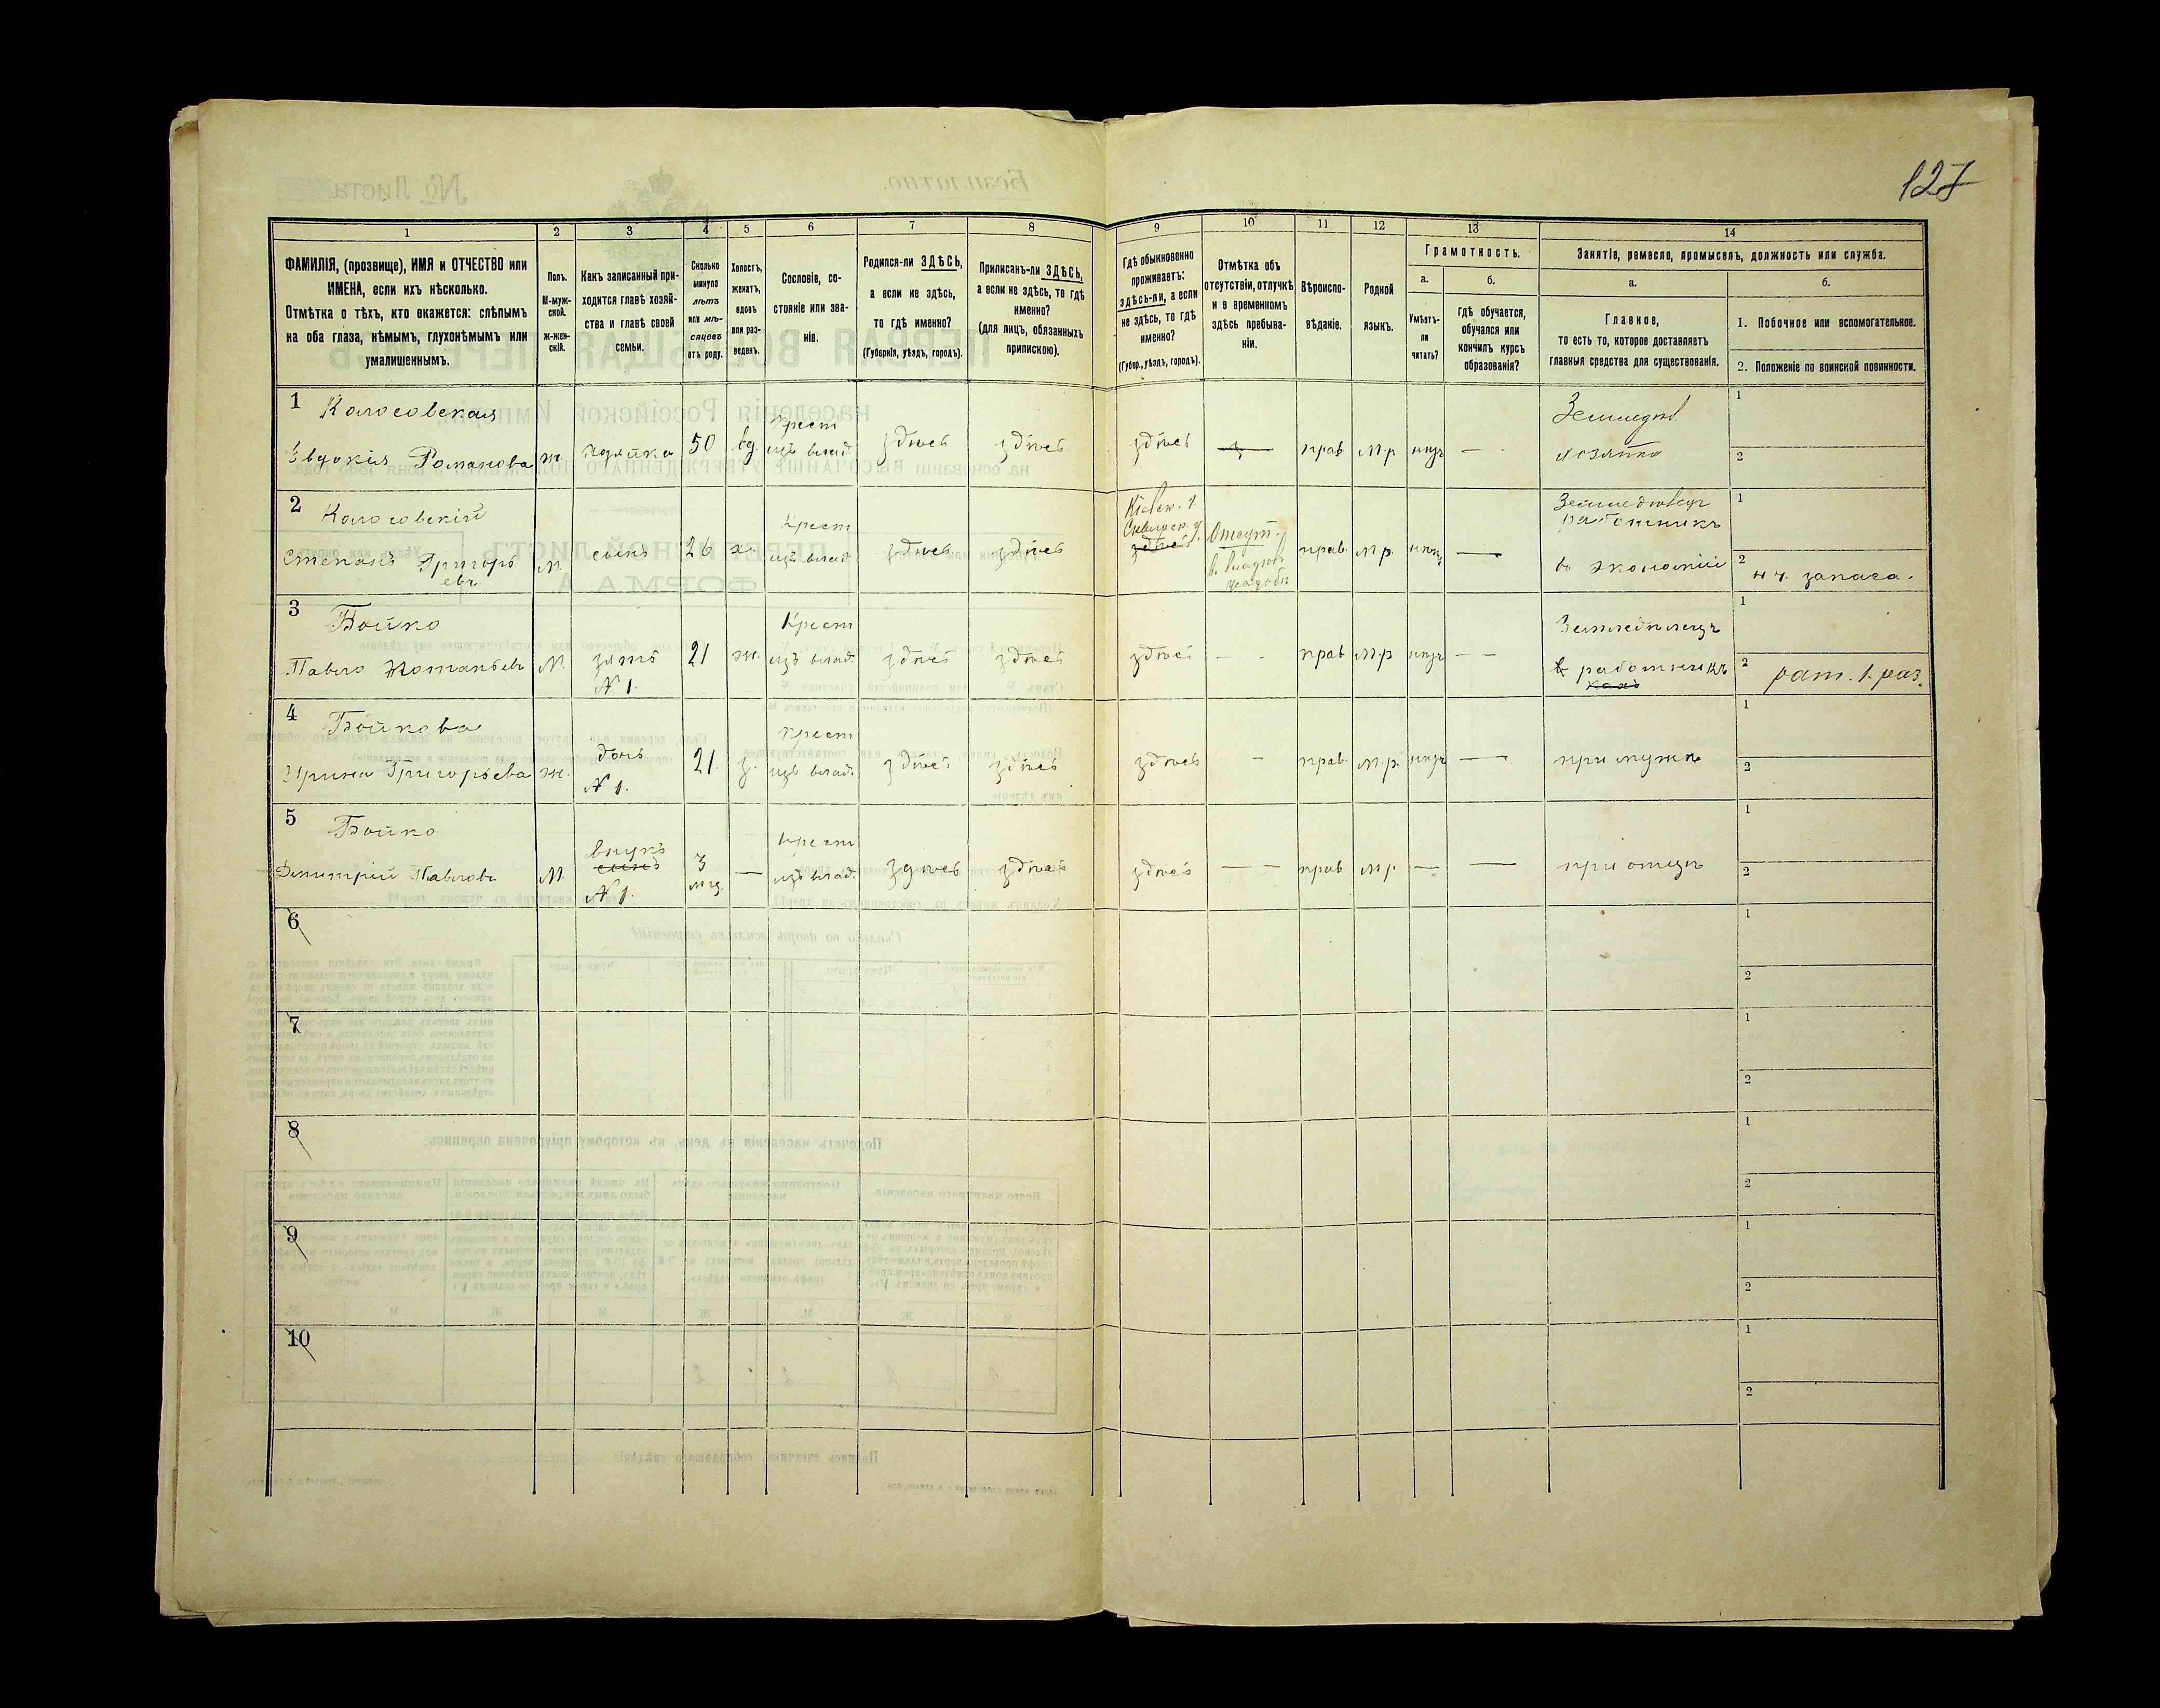 127
1 2 3 4 5 6 7 8 9 10 11 12 13 14
ФАМИЛІЯ, (прозвище), ИМЯ и ОТЧЕСТВО или
ИМЕНА, если ихъ нѣсколько.
Отмѣтка о тѣхъ, кто окажется: слѣпымъ
на оба глаза, нѣмымъ, глухонѣмымъ или
умалишеннымъ.
Полъ.
М-муж-
ской.
Ж-жен-
скій.
Какъ записанный при-
ходится главѣ хозяй-
ства и главѣ своей
семьи.
Сколько
минуло
лѣтъ
или мѣ-
сяцевъ
отъ роду.
Холостъ,
женатъ,
вдовъ
или раз-
веденъ.
Сословіе, со-
стояніе или зва-
ніе.
Родился-ли ЗДѢСЬ,
а если не здѣсь,
то гдѣ именно?
(Губернія, уѣздъ, городъ).
Приписанъ-ли ЗДѢСЬ,
а если не здѣсь, то гдѣ
именно?
(для лицъ, обязанныхъ
припискою).
Гдѣ обыкновенно
проживаетъ:
здѣсь-ли, а если
не здѣсь, то гдѣ
именно?
(Губер., уѣздъ, городъ).
Отмѣтка объ
отсутствіи, отлучкѣ
и о временномъ
здѣсь пребыва-
ніи.
Вѣроиспо-
вѣданіе.
Родной
языкъ.
Грамотность.
а.
Умѣетъ-
ли
читать?
б.
гдѣ обучается,
обучался или
кончилъ курсъ
образованія?
Занятіе, ремесло, промыселъ, должность или служба.
а.
Главное,
то есть то, которое доставляетъ
главныя средства для существованія.
б.
1. Побочное или вспомогательное.
2. Положеніе по воинской повинности.
1 Колосовская
Евдокія Романова ж. 50 вд. Крест
изъ влад. здѣсь здѣсь здѣсь — прав м.р нѣтъ —
Земледѣл.
хозяйка
1
2
2 Колосовскій
Степанъ Григорь
евъ М. сынъ 26 х. Крест
изъ влад здѣсь здѣсь
Кіевск. г.
Сквирск. у.
здѣсь
Отсут.
прав. м р. нѣтъ —
Земледѣлецъ
работникъ
въ экономіи
1
2 н ч. запаса.
3 Бойко
Павло Потапьевъ М. зять
№ 1. 21 ж. Крест
изъ влад. здѣсь здѣсь здѣсь — - прав м.р нѣтъ — —
Земледѣлецъ
в работникъ
1
2 рат. 1. раз.
4 Бойкова
Ирина Григорьева ж. дочь
№ 1. 21. з. крест
изъ влад. здѣсь здѣсь здѣсь - прав. м.р. нѣтъ — при мужѣ
1
2
5 Бойко
Димитрій Павловъ М внукъ
сынъ
№ 1. 3
мц. — крест
изъ влад. здѣсь здѣсь здѣсь — - прав м р — — при отцѣ
1
2
6 1
2
7 1
2
8 1
2
9 1
2
10 1
2